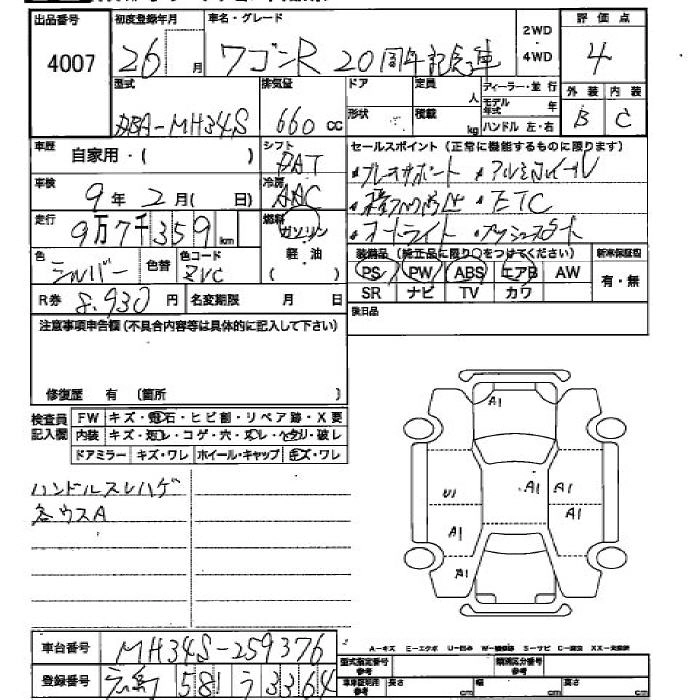 出品番号 初度登録年月 車名・グレード 評価点
4007 26 月 ワゴンR 20周年記念車 2WD 4WD 4
型式 排気量 ドア 定員 人 ディーラー・並行 外装 内装
DBA-MH34S 660 cc 形状 積載 kg モデル年式 年 ハンドル 左・右 B C
車歴 自家用・( ) シフト セールスポイント(正常に機能するものに限ります)
DAT
車検 9年 2月( 日) 冷房 AAC ・アルミホイール
・ETC
走行 9万7千359 km 燃料 ガソリン ・オートライト ・プッシュスタート
軽油
色 シルバー 色替 色コード ZVC ( ) 装備品(純正品に限り○をつけてください) 新車保証書
PS PW ABS エアB AW 有・無
R券 8,930円 名変期限 月 日 SR ナビ TV カワ
注意事項申告欄(不具合内容等は具体的に記入して下さい) 後日品
修復歴 有 (箇所 )
検査員記入欄 FW キズ・飛石・ヒビ割・リペア跡・X要
内装 キズ・汚レ・コゲ・穴・スレ・ヘタリ・破レ
ドアミラー キズ・ワレ ホイール・キャップ キズ・ワレ
ハンドルスレハゲ
各ウスA
A1
A1 A1
U1 A1
A1
A1
車台番号 MH34S-259376
A-キズ E-エクボ U-凹み W-補修跡 S-サビ C-腐食 XX-交換済
型式指定番号 参考 類別区分番号 参考
登録番号 581 う 3364 車庫証明用 参考 長さ cm 幅 cm 高さ cm